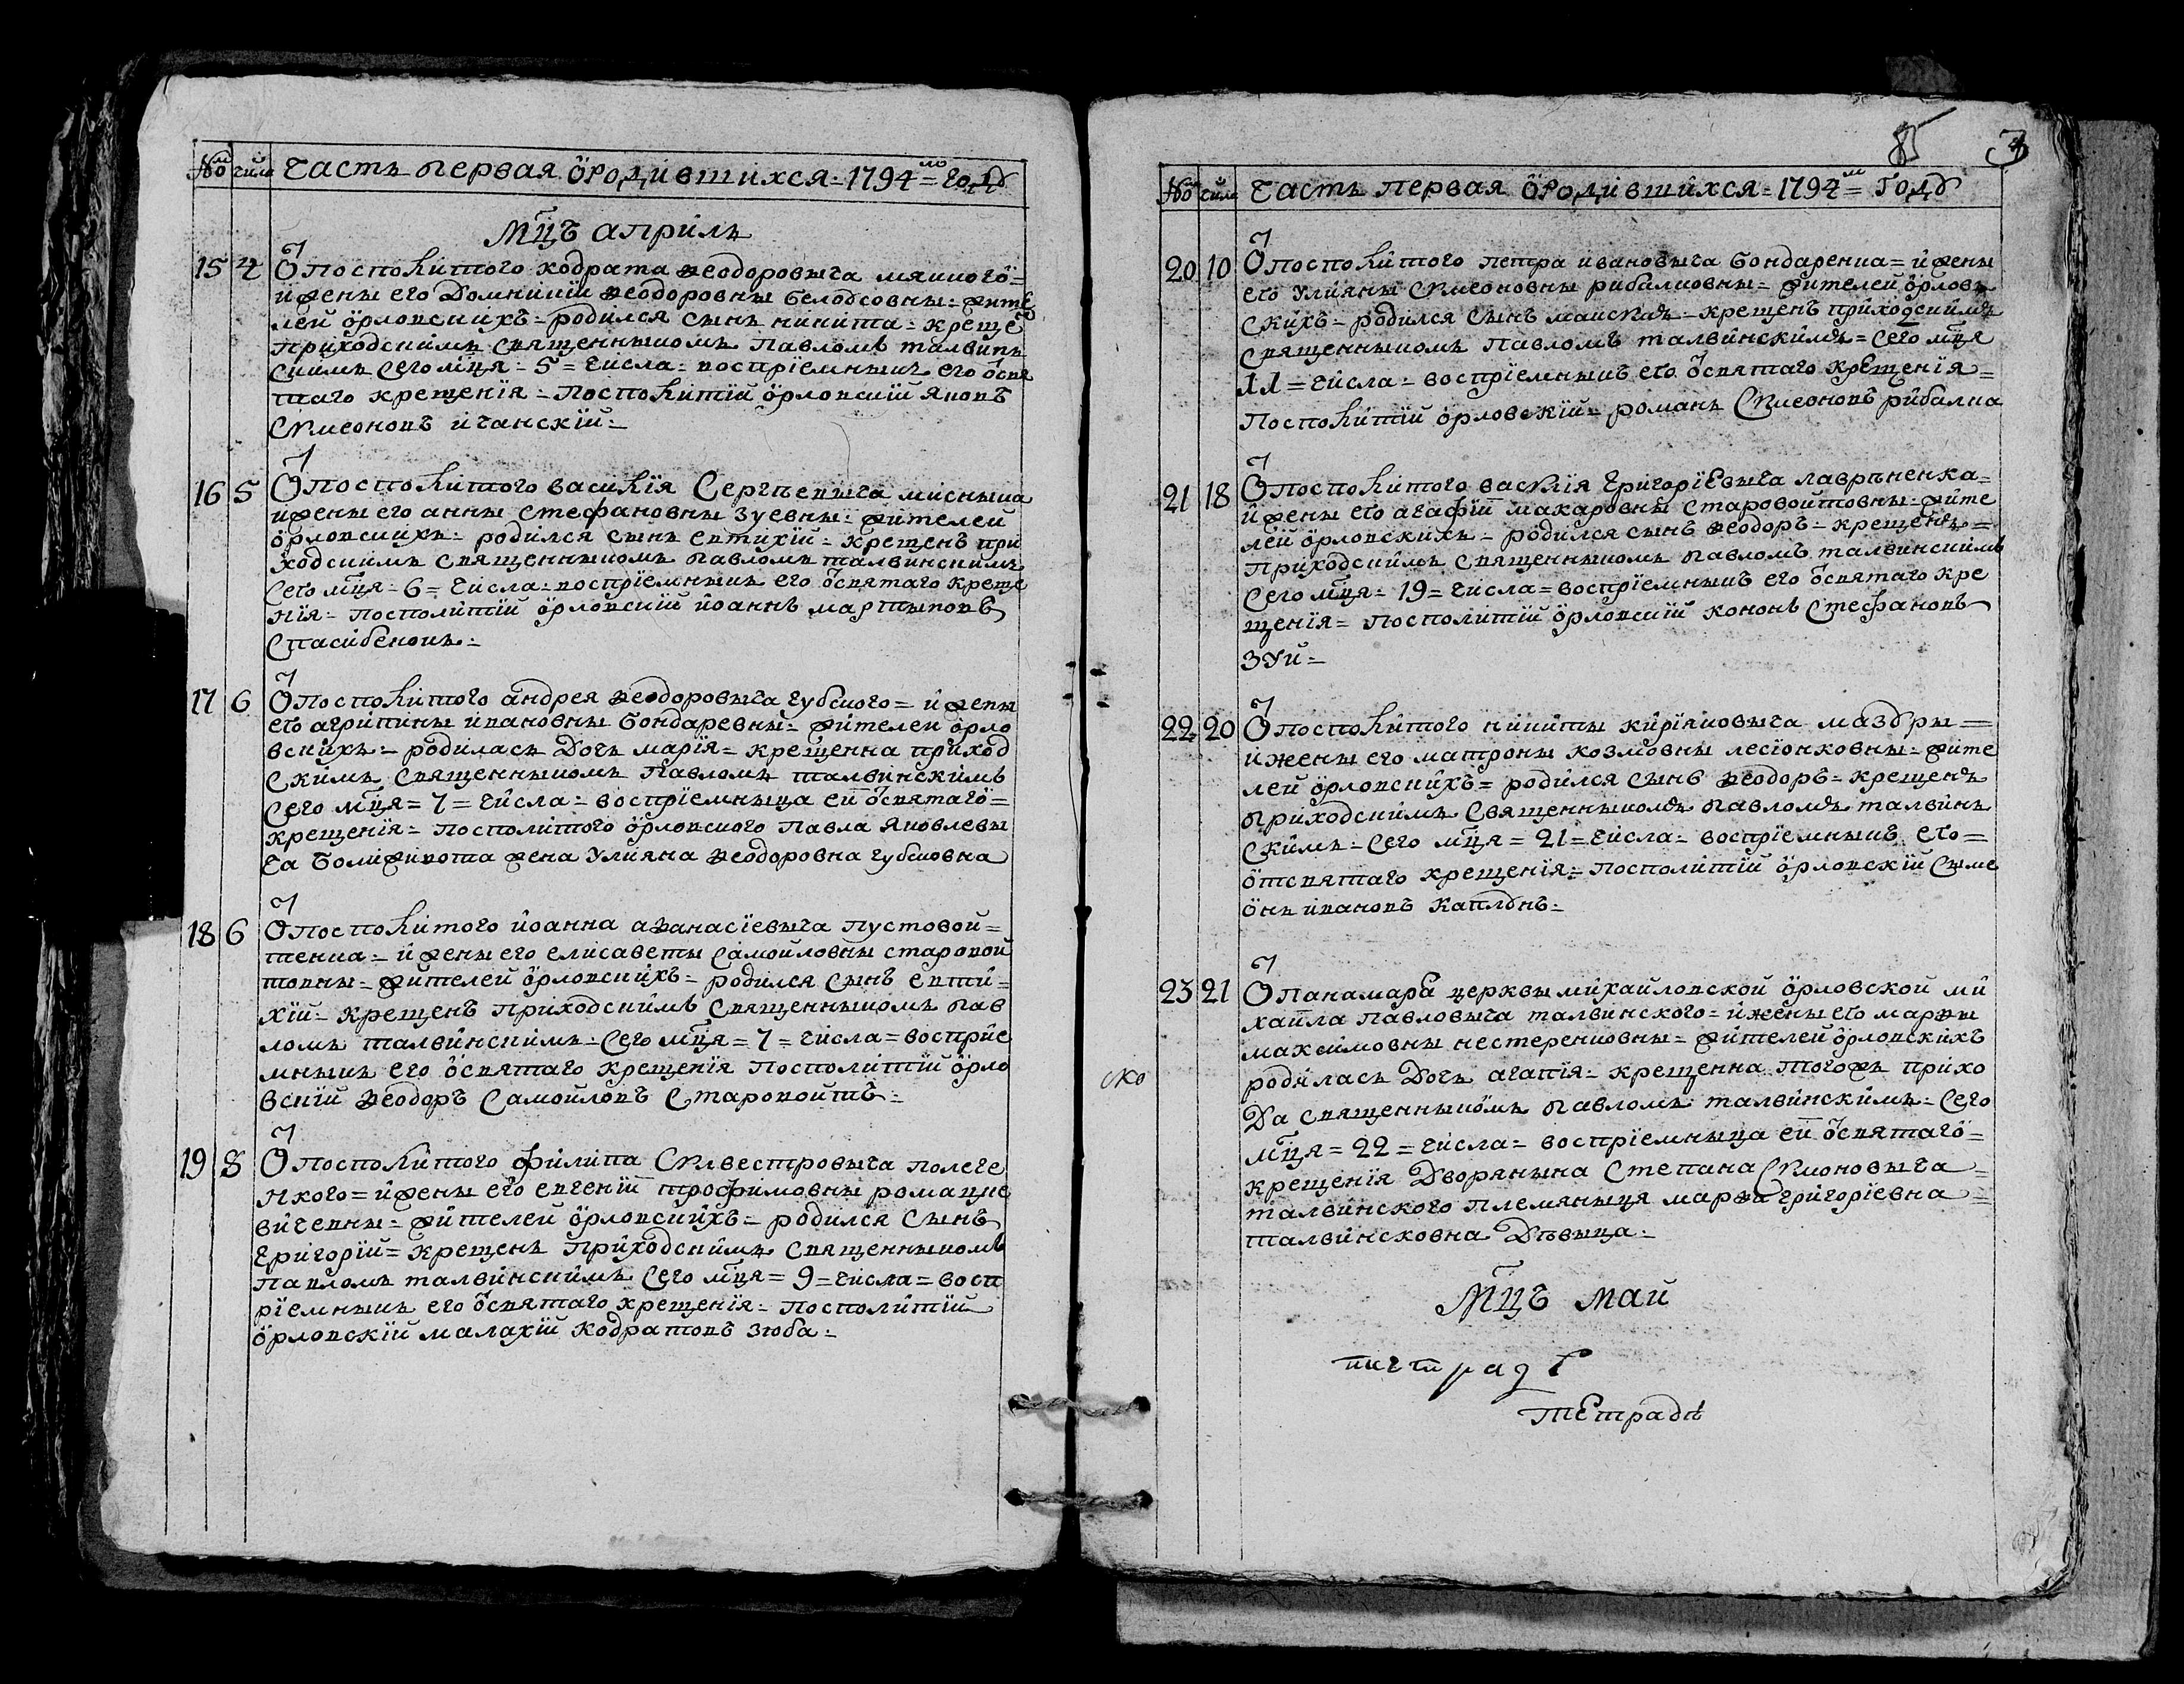 № числ Часть первая о родившихся = 1794 = году
Мцъ априль
15 4 От посполитого кодрата Ѳеодоровыча мянного =
и жены его Домникіи Ѳеодоровны белоусовны = жите
лей орловскихъ = родился сынъ никита = креще
приходскимъ священныкомъ Павломъ талвинъ
скимъ сего мця = 5 = числа = воспріемныкъ его от свя
таго крещенія = Посполитій орловскій Яковъ
Симеоновъ ичанскій =
16 5 От посполитого василія Сергѣевыча мисныка
и жены его анны стефановны зуевны = жителей
орловскихъ = родился сынъ евтихій = крещенъ при
ходскимъ священныкомъ павломъ талвинскимъ
сего мця = 6 = числа = воспріемныкъ его от святаго креще
нія = посполитій орловскій іоаннъ мартыновъ
Спасибенокъ =
17 6 От посполитого андрея Ѳеодоровыча губского = и жены
его агрипины ивановны бондаревны = жителей орло
вскихъ = родилась Дочь марія = крещенна приход
скимъ священныкомъ Павломъ талвинскимъ
сего мця = 7 = числа = воспріемныца ей от святаго =
крещенія = посполитого орловского Павла Яковлевы
ча Боли живота жена Уліяна Ѳеодоровна губсковна
18 6 От посполитого іоанна аѲанасіевыча пустовой =
тенка = и жены его елисаветы самойловны старовой
товны = жителей орловскихъ = родился сынъ евти =
хій = крещенъ приходскимъ священныкомъ пав
ломъ талвинскимъ = сего мця = 7 = числа = воспріе
мныкъ его от святаго крещенія посполитій орло
вскій Ѳеодоръ самойловъ старовойтъ =
19 8 От посполитого филипа Силвестровыча полеге
нкого = и жены его евгеніи трофимовны романце
вичевны = жителей орловскихъ = родился сынъ
григорій = крещенъ приходскимъ священныкомъ
павломъ талвинскимъ сего мця = 9 = числа = восп
ріемныкъ его от святаго крещенія = посполитій
орловскій малахій кодратовъ зюба =
85
№ числ Часть первая о родившихся = 1794 = Году
20 10 От посполитого петра ивановыча бондаренка = и жены
его уліяны симеоновны рибалковны = жителей орловъ
скихъ = родился сынъ маискмъ = крещенъ приходскимъ
священныкомъ Павломъ талвинскимъ = сего мця
11 = числа = воспріемныкъ его от святаго крещенія =
посполитій орловскій = романъ симеоновъ рибалка
21 18 От посполитого василія григоріевыча лавриненка =
и жены его агафіи макаровны старовойтовны = жите
лей орловскихъ = родился сынъ Ѳеодоръ = крещенъ =
приходскимъ священныкомъ павломъ талвинскимъ
сего мця = 19 = числа = воспріемныкъ его от святаго кре
щенія = посполитій орловскій кононъ стефановъ
зуй =
22 20 От посполитого никиты киріяковыча маздры =
и жены его матроны козмовны лесіонковны = жите
лей орловскихъ = родился сынъ Ѳеодоръ = крещенъ
приходскимъ священныкомъ павломъ талвинъ
скимъ = сего мця = 21 = числа = воспріемныкъ его =
от святаго крещенія = посполитій орловскій сыме
онъ ивановъ каплунъ =
23 21 От панамара церквы михайловской орловской ми
хаила павловыча талвинского = и жены его марѲы
максимовны нестеренковны = жителей орловскихъ
родилась Дочь агапія = крещенна тогожъ прихо
Да священныкомъ павломъ талвинскимъ = сего
мця = 22 = числа = воспріемныца ей от святаго =
крещенія Дворянына Степана Симоновыча =
талвинского племяныця марѲа григоріевна =
талвинсковна Дѣвыца =
ско
Мцъ май
тетрадь